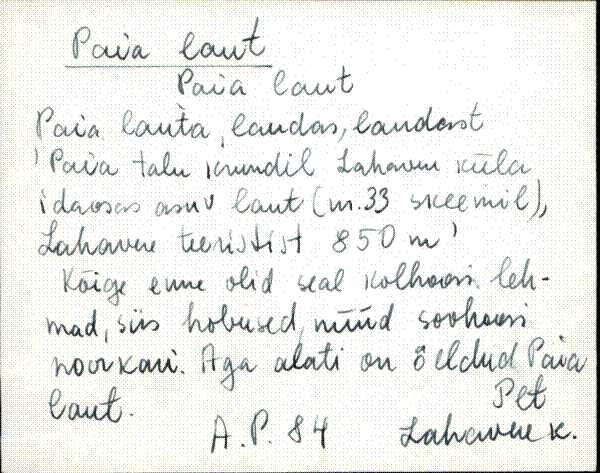 Paia laut
Paia laut
Paia lauta, laudas, laudast
'Paia talu krundil Lahavere küla
idaosas asuv laut (nr. 33 skeemil),
Lahavere teeristist 850 m'
Kõige enne olid seal kolhoosi leh-
mad, siis hobused, nüüd sovhoosi
noorkari. Aga alati on öeldud Paia
laut. Plt
A.P. 84 Lahavere k.